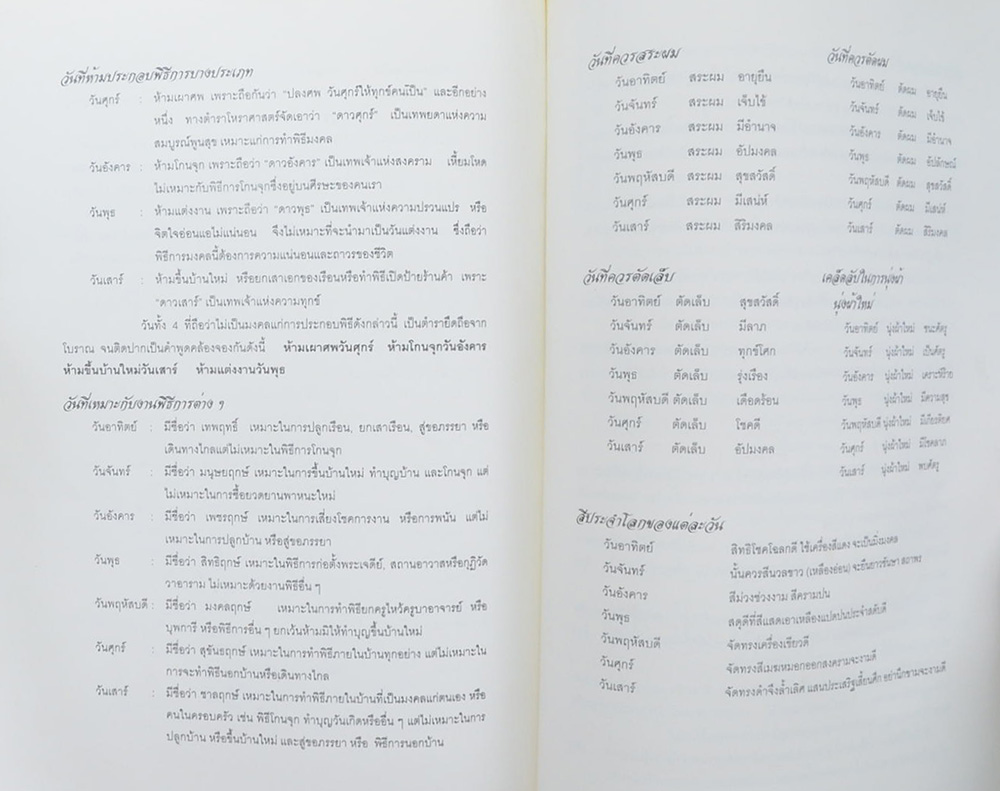 วันที่ห้ามประกอบพิธีการบางประเภท
วันศุกร์ : ห้ามเผาศพ เพราะถือกันว่า “ปลงศพ วันศุกร์ให้ทุกข์คนเป็น” และอีกอย่าง
หนึ่ง ทางตำราโหราศาสตร์จัดเอาว่า “ดาวศุกร์” เป็นเทพยดาแห่งความ
สมบูรณ์พูนสุข เหมาะแก่การทำพิธีมงคล
วันอังคาร : ห้ามโกนจุก เพราะถือว่า “ดาวอังคาร” เป็นเทพเจ้าแห่งสงคราม เหี้ยมโหด
ไม่เหมาะกับพิธีการโกนจุกซึ่งอยู่บนศีรษะของคนเรา
วันพุธ : ห้ามแต่งงาน เพราะถือว่า “ดาวพุธ” เป็นเทพเจ้าแห่งความปรวนแปร หรือ
จิตใจอ่อนแอไม่แน่นอน จึงไม่เหมาะที่จะนำมาเป็นวันแต่งงาน ซึ่งถือว่า
พิธีการมงคลนี้ต้องการความแน่นอนและถาวรของชีวิต
วันเสาร์ : ห้ามขึ้นบ้านใหม่ หรือยกเสาเอกของเรือนหรือทำพิธีเปิดป้ายร้านค้า เพราะ
“ดาวเสาร์” เป็นเทพเจ้าแห่งความทุกข์
วันทั้ง 4 ที่ถือว่าไม่เป็นมงคลแก่การประกอบพิธีดังกล่าวนี้ เป็นตำรายึดถือจาก
โบราณ จนติดปากเป็นคำพูดคล้องจองกันดังนี้ ห้ามเผาศพวันศุกร์ ห้ามโกนจุกวันอังคาร
ห้ามขึ้นบ้านใหม่วันเสาร์ ห้ามแต่งงานวันพุธ
วันที่เหมาะกับงานพิธีการต่าง ๆ
วันอาทิตย์ : มีชื่อว่า เทพฤทธิ์ เหมาะในการปลูกเรือน, ยกเสาเรือน, สู่ขอภรรยา หรือ
เดินทางไกลแต่ไม่เหมาะในพิธีการโกนจุก
วันจันทร์ : มีชื่อว่า มนุษยฤกษ์ เหมาะในการขึ้นบ้านใหม่ ทำบุญบ้าน และโกนจุก แต่
ไม่เหมาะในการซื้อยวดยานพาหนะใหม่
วันอังคาร : มีชื่อว่า เพชรฤกษ์ เหมาะในการเสี่ยงโชคการงาน หรือการพนัน แต่ไม่
เหมาะในการปลูกบ้าน หรือสู่ขอภรรยา
วันพุธ : มีชื่อว่า สิทธิฤกษ์ เหมาะในพิธีการก่อตั้งพระเจดีย์, สถานอาวาสหรือกุฏิวัด
วาอาราม ไม่เหมาะด้วยงานพิธีอื่น ๆ
วันพฤหัสบดี : มีชื่อว่า มงคลฤกษ์ เหมาะในการทำพิธียกครูไหว้ครูบาอาจารย์ หรือ
บุพการี หรือพิธีการอื่น ๆ ยกเว้นห้ามมิให้ทำบุญขึ้นบ้านใหม่
วันศุกร์ : มีชื่อว่า สุขันธฤกษ์ เหมาะในการทำพิธีภายในบ้านทุกอย่าง แต่ไม่เหมาะใน
การจะทำพิธีนอกบ้านหรือเดินทางไกล
วันเสาร์ : มีชื่อว่า ชาลฤกษ์ เหมาะในการทำพิธีภายในบ้านที่เป็นมงคลแก่ตนเอง หรือ
คนในครอบครัว เช่น พิธีโกนจุก ทำบุญวันเกิดหรืออื่น ๆ แต่ไม่เหมาะในการ
ปลูกบ้าน หรือขึ้นบ้านใหม่ และสู่ขอภรรยา หรือ พิธีการนอกบ้าน
วันที่ควรสระผม
วันอาทิตย์ สระผม อายุยืน
วันจันทร์ สระผม เจ็บไข้
วันอังคาร สระผม มีอำนาจ
วันพุธ สระผม อัปมงคล
วันพฤหัสบดี สระผม สุขสวัสดิ์
วันศุกร์ สระผม มีเสน่ห์
วันเสาร์ สระผม สิริมงคล
วันที่ควรตัดผม
วันอาทิตย์ ตัดผม อายุยืน
วันจันทร์ ตัดผม เจ็บไข้
วันอังคาร ตัดผม มีอำนาจ
วันพุธ ตัดผม อัปลักษณ์
วันพฤหัสบดี ตัดผม สุขสวัสดิ์
วันศุกร์ ตัดผม มีเสน่ห์
วันเสาร์ ตัดผม สิริมงคล
วันที่ควรตัดเล็บ
วันอาทิตย์ ตัดเล็บ สุขสวัสดิ์
วันจันทร์ ตัดเล็บ มีลาภ
วันอังคาร ตัดเล็บ ทุกข์โศก
วันพุธ ตัดเล็บ รุ่งเรือง
วันพฤหัสบดี ตัดเล็บ เดือดร้อน
วันศุกร์ ตัดเล็บ โชคดี
วันเสาร์ ตัดเล็บ อัปมงคล
เคล็ดลับในการนุ่งผ้า
นุ่งผ้าใหม่
วันอาทิตย์ นุ่งผ้าใหม่ ชนะศัตรู
วันจันทร์ นุ่งผ้าใหม่ เป็นศัตรู
วันอังคาร นุ่งผ้าใหม่ เคราะห์ร้าย
วันพุธ นุ่งผ้าใหม่ มีความสุข
วันพฤหัสบดี นุ่งผ้าใหม่ มีเกียรติยศ
วันศุกร์ นุ่งผ้าใหม่ มีโชคลาภ
วันเสาร์ นุ่งผ้าใหม่ พบศัตรู
สีประจำโลกของแต่ละวัน
วันอาทิตย์ สิทธิโชคโฉลกดี ใช้เครื่องสีแดง จะเป็นมิ่งมงคล
วันจันทร์ นั้นควรสีนวลขาว (เหลืองอ่อน) จะยืนยาวชันษา สถาพร
วันอังคาร สีม่วงช่วงงาม สีครามปน
วันพุธ สดุดีที่สีแสดเอาเหลืองแปดปนประจำสดับดี
วันพฤหัสบดี จัดทรงเครื่องเขียวดี
วันศุกร์ จัดทรงสีเมฆหมอกออกสงครามจะงามดี
วันเสาร์ จัดทรงดำจึงล้ำเลิศ แสนประเสริฐเสี้ยนศึก อย่านึกขามจะงามดี